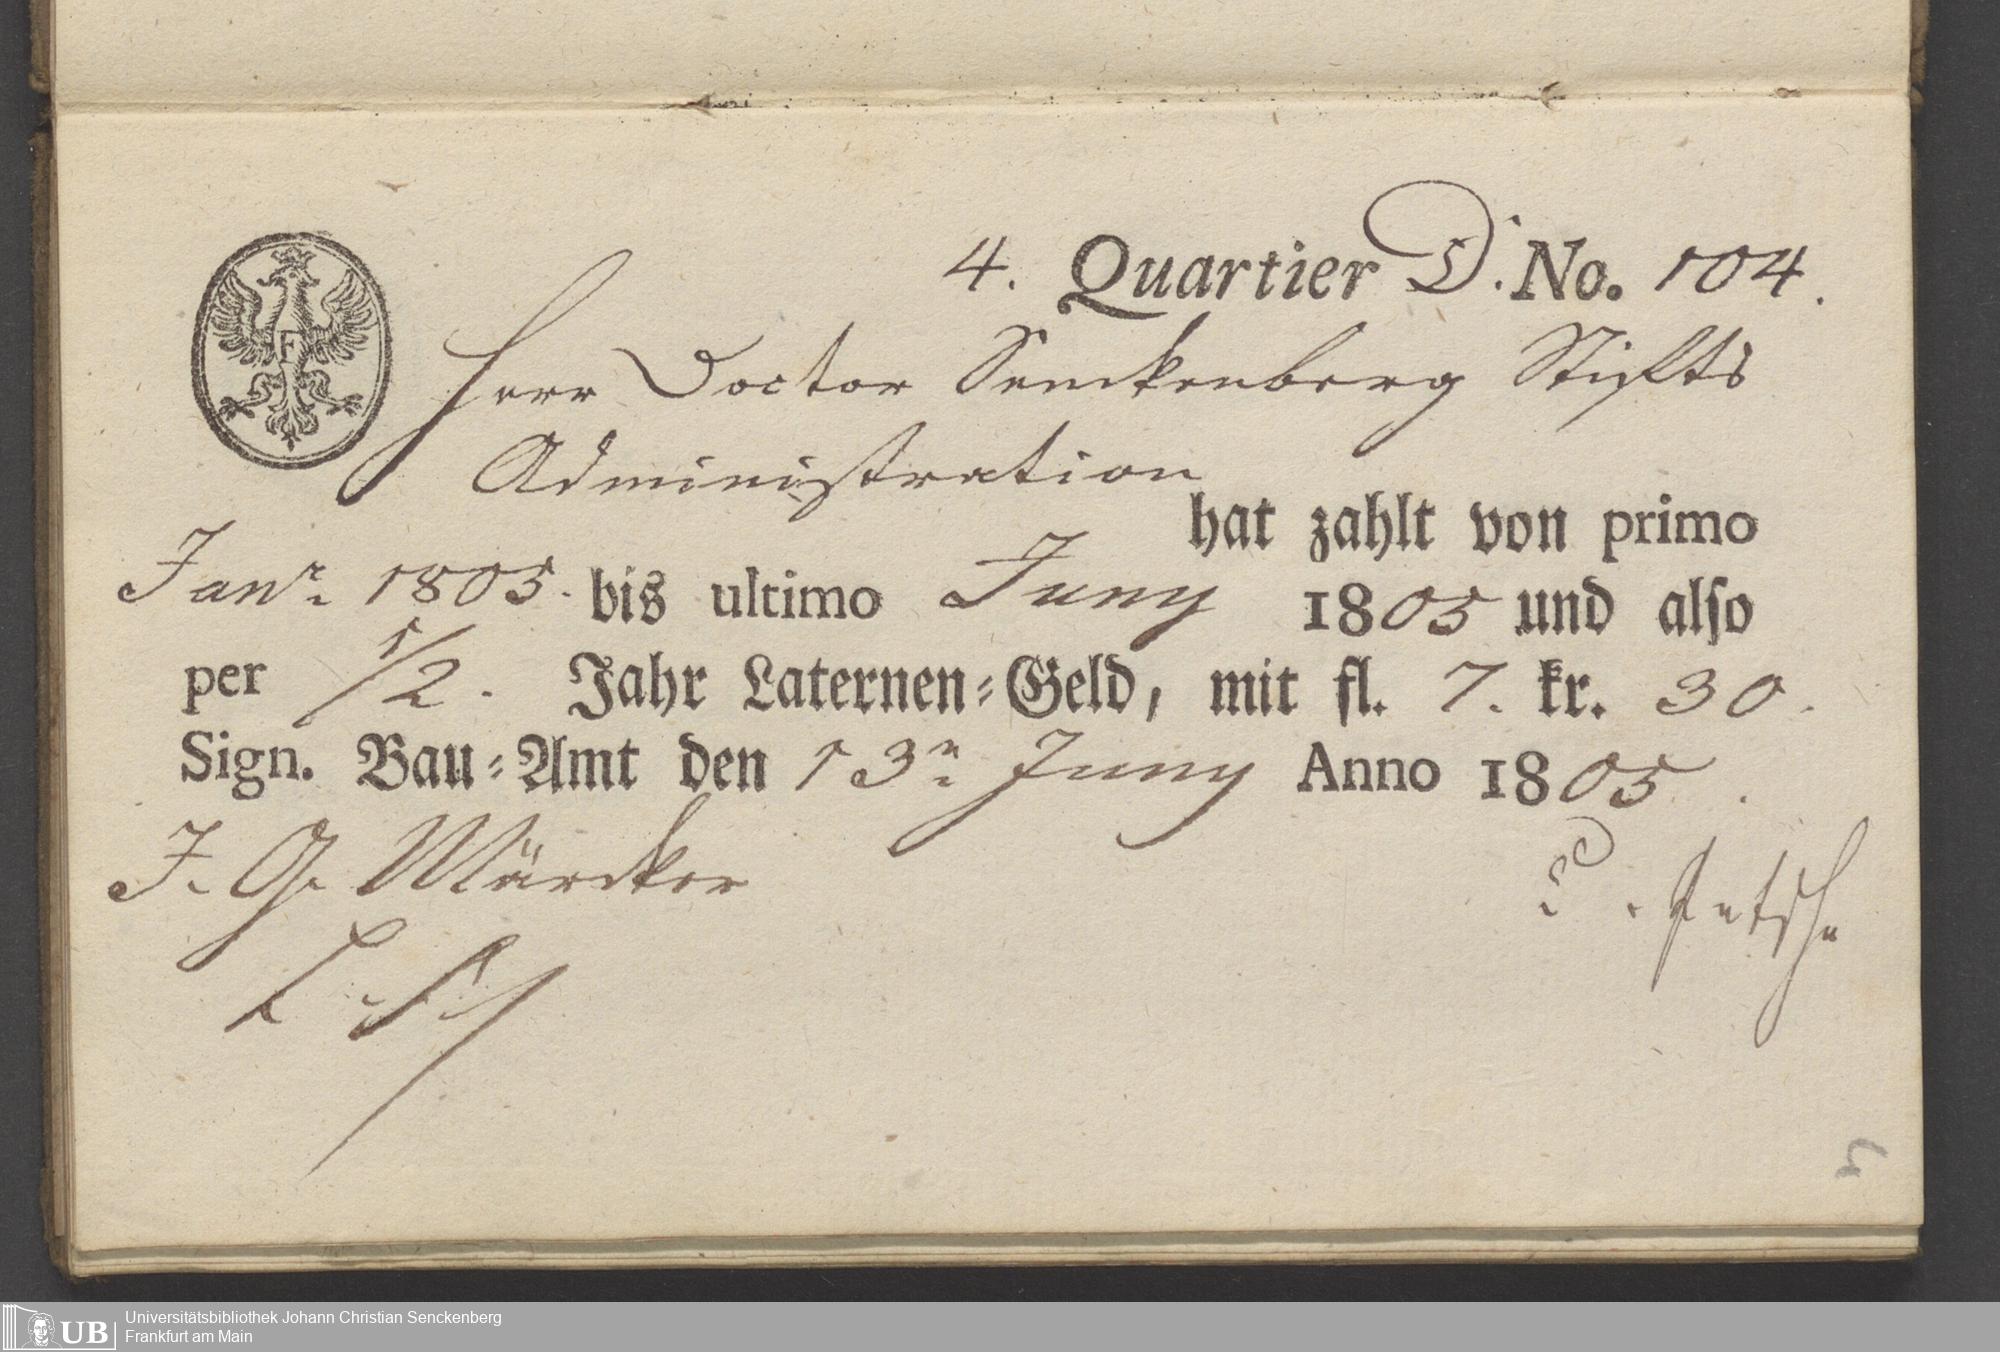 4. Quartier D. No. 104.
F
Herr Doctor Senckenberg Stifts
Administration
hat zahlt von primo
Janr. 1805. bis ultimo Juny 1805 und also
per 1/2. Jahr Laternen-Geld, mit fl. 7. kr. 30.
Sign. Bau-Amt den 13n. Juny Anno 1805.
J. G. Märcker
5
UB
Universitätsbibliothek Johann Christian Senckenberg
Frankfurt am Main